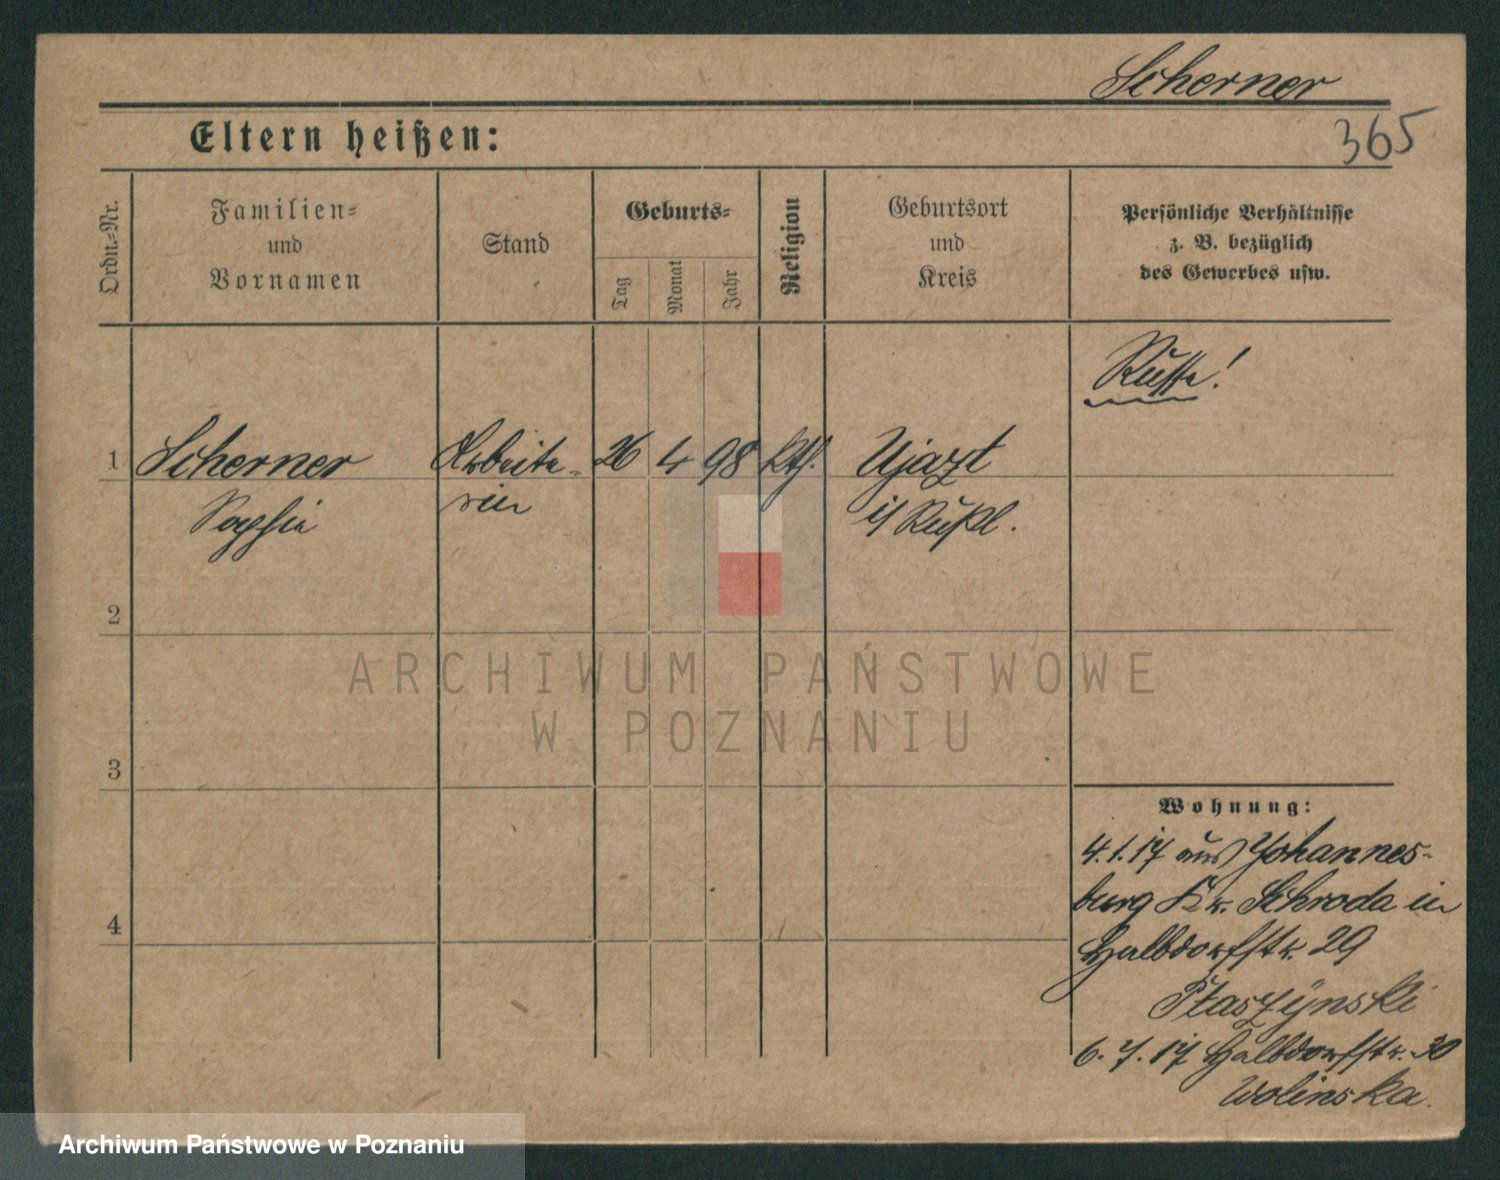 Scherner
365
Eltern heißen:
Ordn.-Nr.
Familien-
und
Vornamen
Stand
Geburts-
Tag
Monat
Jahr
Religion
Geburtsort
und
Kreis
Persönliche Verhältnisse
z. B. bezüglich
des Gewerbes usw.
Russe!
1 Scherner Arbeite- 26 4 98 kth. Ujazt
Sophie rin i/ Rußl.
2
3
4
ARCHIWUM PAŃSTWOWE
W POZNANIU
Wohnung:
4.1.17 aus Johannes-
burg Kr. Schroda in
Halbdorfstr. 29
Ptaszÿnski
6.7.17 Halbdorfstr. 30
Wolinska.
Archiwum Państwowe w Poznaniu